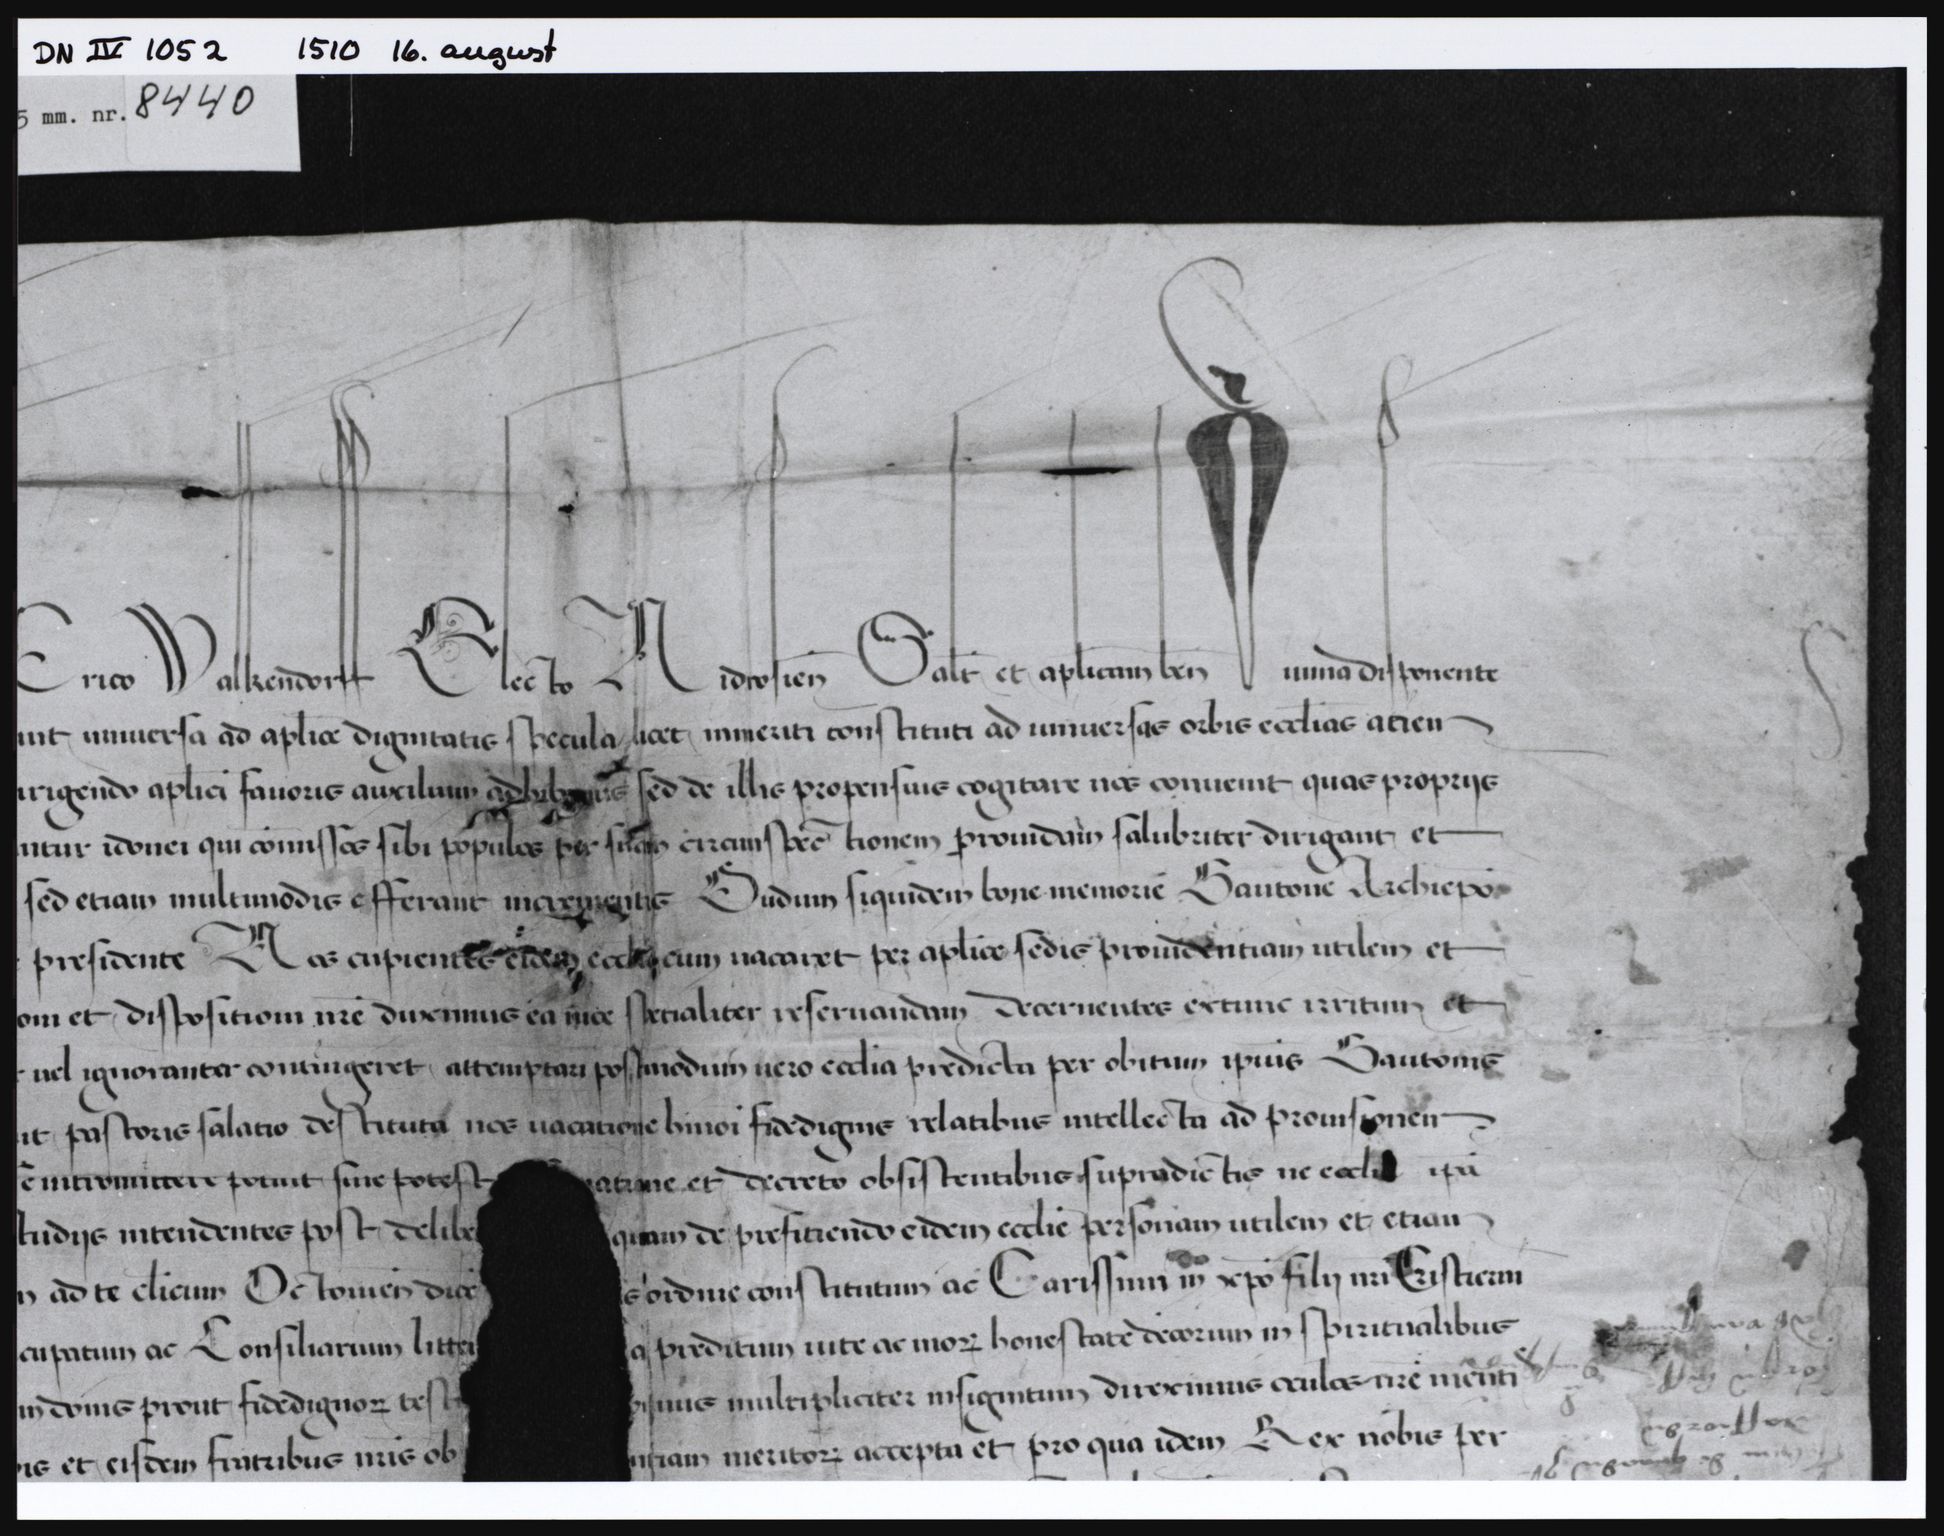 DN IV 1052 1510 16. august
5 mm. nr. 8440
Erico Walkendorff Electo Nidrosien Salt et aplicam ben Diuina disponente
unt uniuersa ad aplice dignitatis specula licet immeriti constituti ad uniuersas orbis ecclias atten
irigendo aplici fauoris auxilium adhibemus sed de illis propensius cogitare nos conuenit quas proprijs
ntur idonei qui comissos sibi populos per suam circumspectionem prouidam salubriter dirigant et
sed etiam multimodis efferant incrementis Dudum siquidem bone memorie Gautone Archiepo
presidente Nos cupientes eidem ecclie cum uacaret per aplice sedis prouidentiam utilem et
oni et dispositioni nre duximus ea uice specialiter reseruandam decernentes extunc irritum et
uel ignoranter contingeret attemptari postmodum uero ecclia predicta per obitum ipius Gautonis
it pastoris salatio destituta nos uacatione hmoi fidedignis relatibus intellecta ad prouisionem
e intromittere potuit siue potest et decreto obsistentibus supradictis ne ecclia ipa
tudijs intendentes post delibe quam de preficiendo eidem ecclie personam utilem et etiam
n ad te clicum Octonien dice ordine constitutum ac Carissimi in xpo filij nri Cristierni
cupatum ac Consiliarium litter a preditum uite ac mor honestate decorum in spiritualibus
in donis prout fidedignor test multipliciter insignitum direximus oculos nre menti
is et eisdem fratribus nris ob ntiam meritor accepta et pro qua idem Rex nobis per